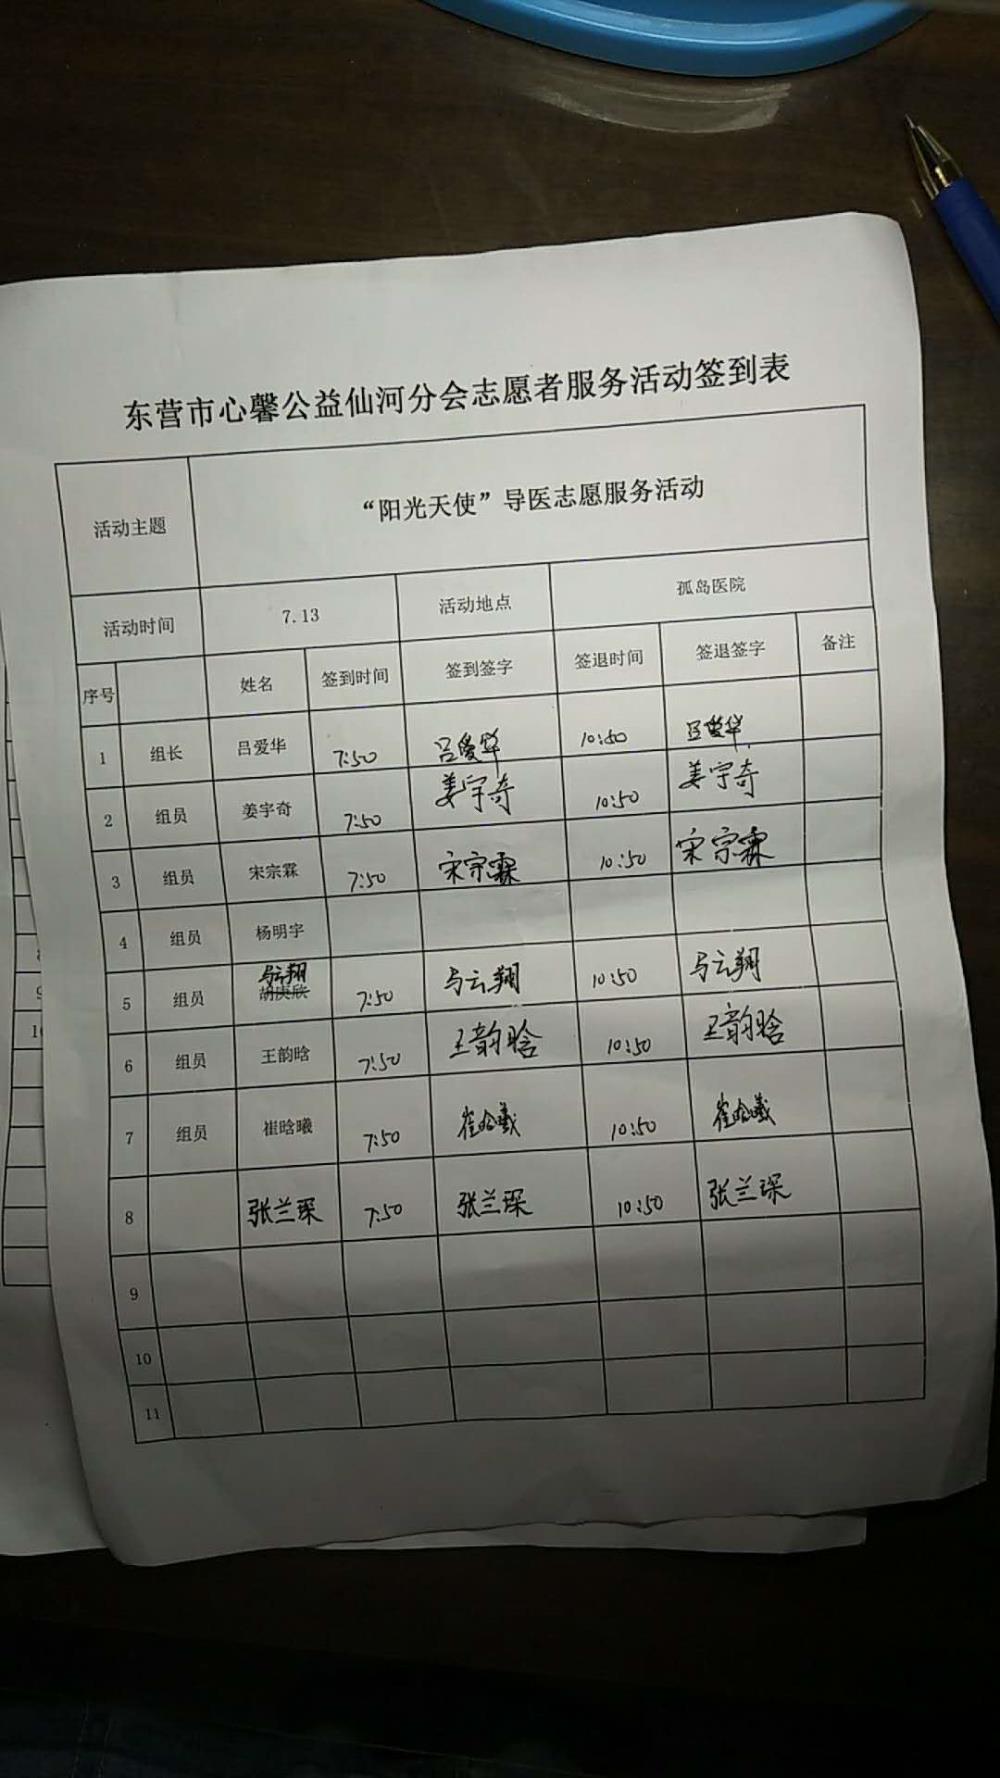 东营市心馨公益仙河分会志愿者服务活动签到表
活动主题 “阳光天使”导医志愿服务活动
活动时间 7.13 活动地点 孤岛医院
序号 姓名 签到时间 签到签字 签退时间 签退签字 备注
1 组长 吕爱华 7:50 吕爱华 10:50 吕爱华
2 组员 姜宇奇 7:50 姜宇奇 10:50 姜宇奇
3 组员 宋宗霖 7:50 宋宗霖 10:50 宋宗霖
4 组员 杨明宇
马云翔
5 组员 胡庚欣 7:50 马云翔 10:50 马云翔
6 组员 王韵晗 7:50 王韵晗 10:50 王韵晗
7 组员 崔晗曦 7:50 崔晗曦 10:50 崔晗曦
8 张兰琛 7:50 张兰琛 10:50 张兰琛
9
10
11